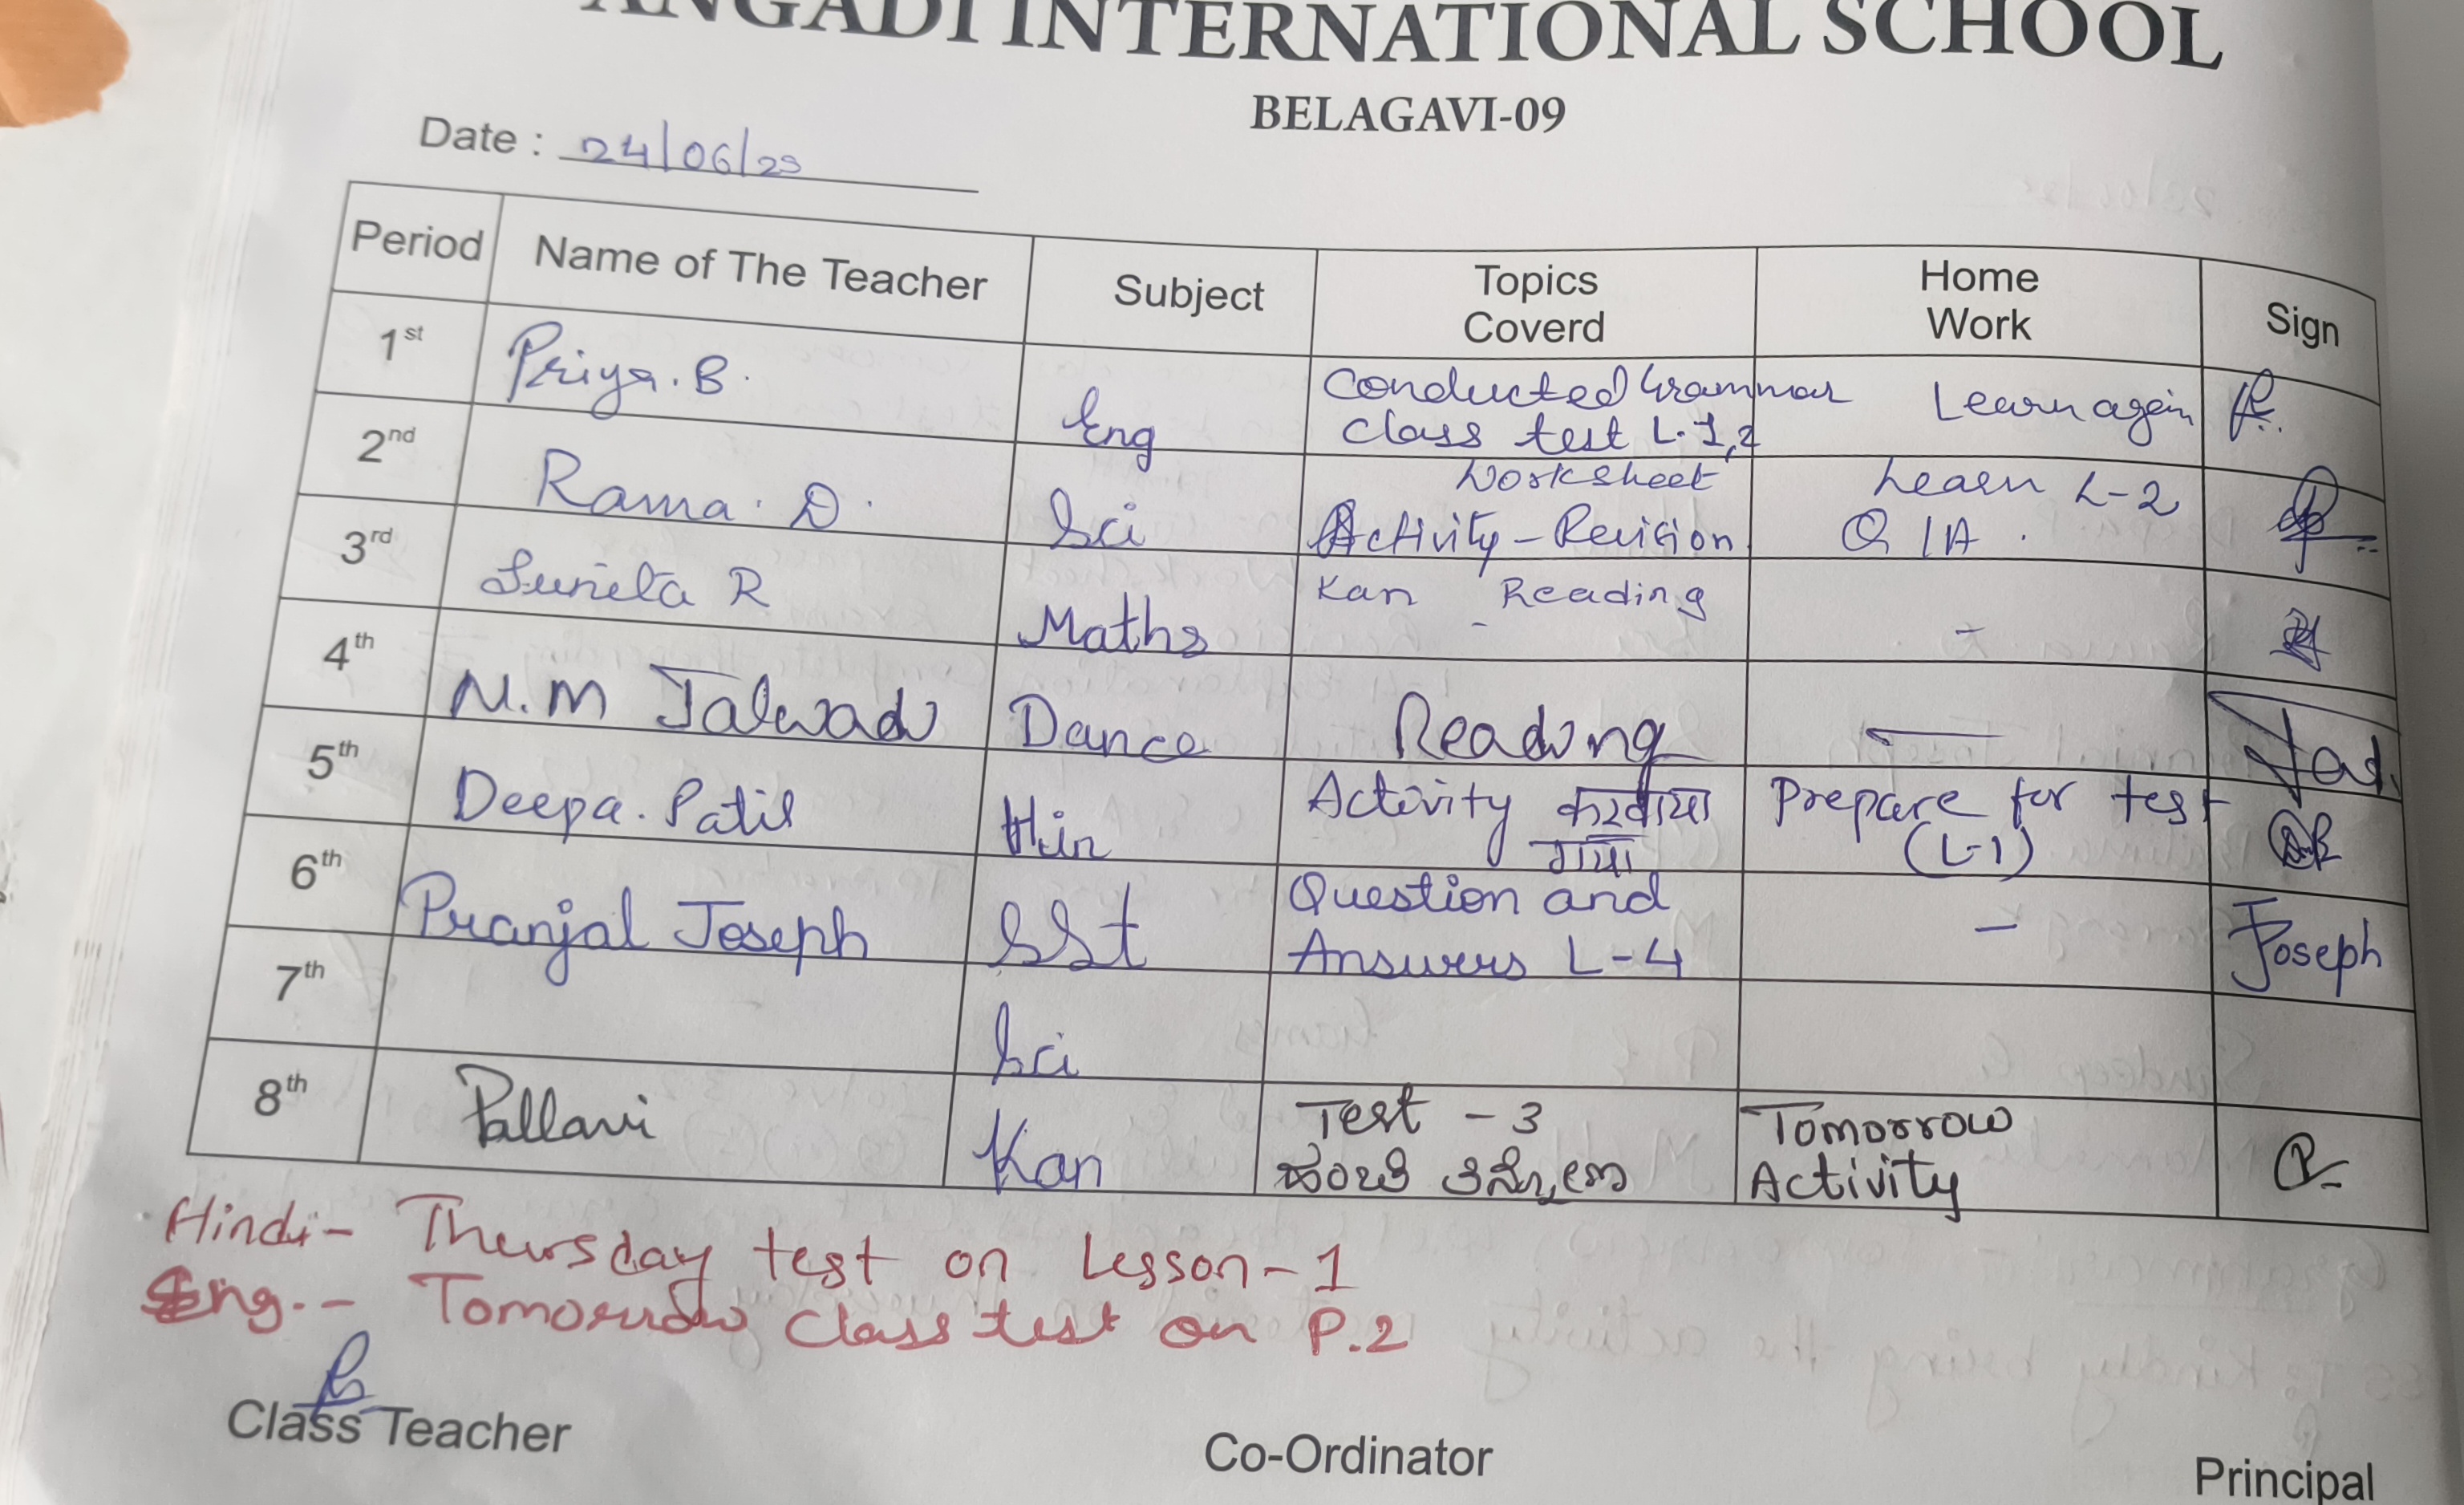 ANGADI INTERNATIONAL SCHOOL
BELAGAVI-09
Date : 24/06/25
Period Name of The Teacher Subject Topics Coverd Home Work Sign
1st Priya. B. Eng Conducted Grammar Learn again
class test L. 1,2
2nd Rama. D. Sci Worksheet Learn L-2
Activity - Revision Q/A.
3rd Sunita R Maths Kan - Reading -
4th N.M Jalwadi Dance Reading — Jad.
5th Deepa. Patil Hin Activity करवाया Prepare for test
गया (L-1)
6th Pranjal Joseph SSt Question and - Joseph
Answers L-4
7th Sci
8th Pallavi Kan Test - 3 Tomorrow
Activity
Hindi- Thursday test on Lesson-1
Eng.- Tomorrow class test on P.2
Class Teacher Co-Ordinator Principal